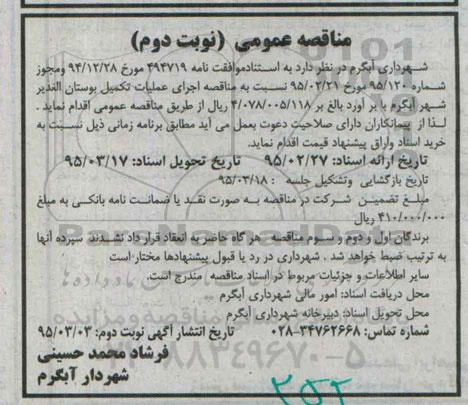 مناقصه عمومی (نوبت دوم)
شهرداری آبگرم در نظر دارد به استنادموافقت نامه ۴۹۴۷۱۹ مورخ ۹۴/۱۲/۲۸ ومجوز
شماره ۹۵/۱۲۰ مورخ ۹۵/۰۲/۲۱ نسبت به مناقصه اجرای عملیات تکمیل بوستان الغدیر
شهر آبگرم با بر آورد بالغ بر ۴/۰۷۸/۰۰۵/۱۱۸ ریال از طریق مناقصه عمومی اقدام نماید.
لذا از پیمانکاران دارای صلاحیت دعوت بعمل می آید مطابق برنامه زمانی ذیل نسبت به
خرید اسناد واراق پیشنهاد قیمت اقدام نماید.
تاریخ ارائه اسناد: ۹۵/۰۲/۲۷ تاریخ تحویل اسناد: ۹۵/۰۳/۱۷
تاریخ بازگشایی وتشکیل جلسه : ۹۵/۰۳/۱۸
مبلغ تضمین شرکت در مناقصه به صورت نقد یا ضمانت نامه بانکی به مبلغ
۴۱۰/۰۰۰/۰۰۰ ریال
برندگان اول و دوم و سوم مناقصه هر گاه حاضر به انعقاد قرار داد نشدند سپرده آنها
به ترتیب ضبط خواهد شد. شهرداری در رد یا قبول پیشنهادها مختار است
سایر اطلاعات و جزئیات مربوط در اسناد مناقصه مندرج است.
محل دریافت اسناد: امور مالی شهرداری آبگرم
محل تحویل اسناد: دبیرخانه شهرداری آبگرم
شماره تماس: ۳۴۷۶۲۶۶۸-۰۲۸ تاریخ انتشار آگهی نوبت دوم: ۹۵/۰۳/۰۳
فرشاد محمد حسینی
شهردار آبگرم
۲۵۲